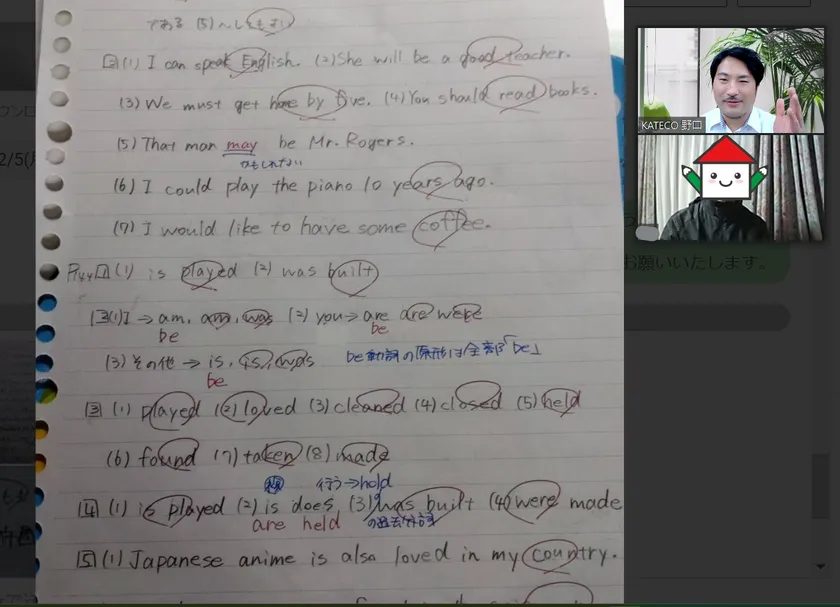 である (5) 〜しても
② (1) I can speak English. (2) She will be a good teacher.
(3) We must get home by five. (4) You should read books.
(5) That man may be Mr. Rogers.
かもしれない
(6) I could play the piano 10 years ago.
(7) I would like to have some coffee.
P44 ① (1) is played (2) was built
② (1) I → am, am, was (2) you → are are were
be be
(3) その他 → is, is, was be動詞の原形は全部「be」
be
③ (1) played (2) loved (3) cleaned (4) closed (5) held
(6) found (7) taken (8) made
行う→hold
④ (1) is played (2) is does (3) was built (4) were made
are held の過去分詞
⑤ (1) Japanese anime is also loved in my country.
KATECO 野口
2/5(
お願いいたします。